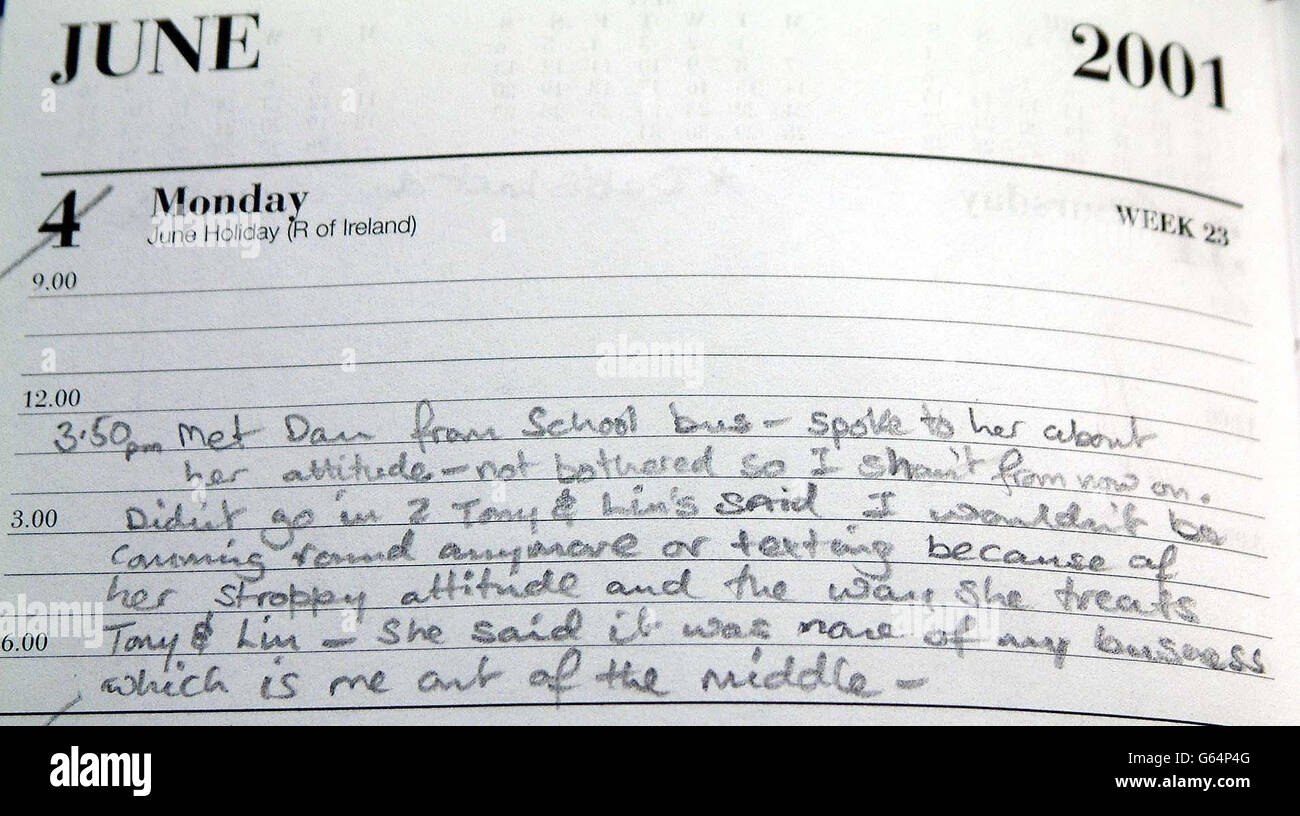 JUNE 2001
4 Monday WEEK 23
June Holiday (R of Ireland)
9.00
12.00
3.50pm Met Dan from School bus - spoke to her about
her attitude - not bothered so I shan't from now on.
3.00 Didn't go in 2 Tony & Lin's said I wouldn't be
comming round anymore or texting because of
her stroppy attitude and the way she treats
6.00 Tony & Lin - She said it was none of my busness
which is me out of the middle -
alamy
Image ID: G64P4G
www.alamy.com